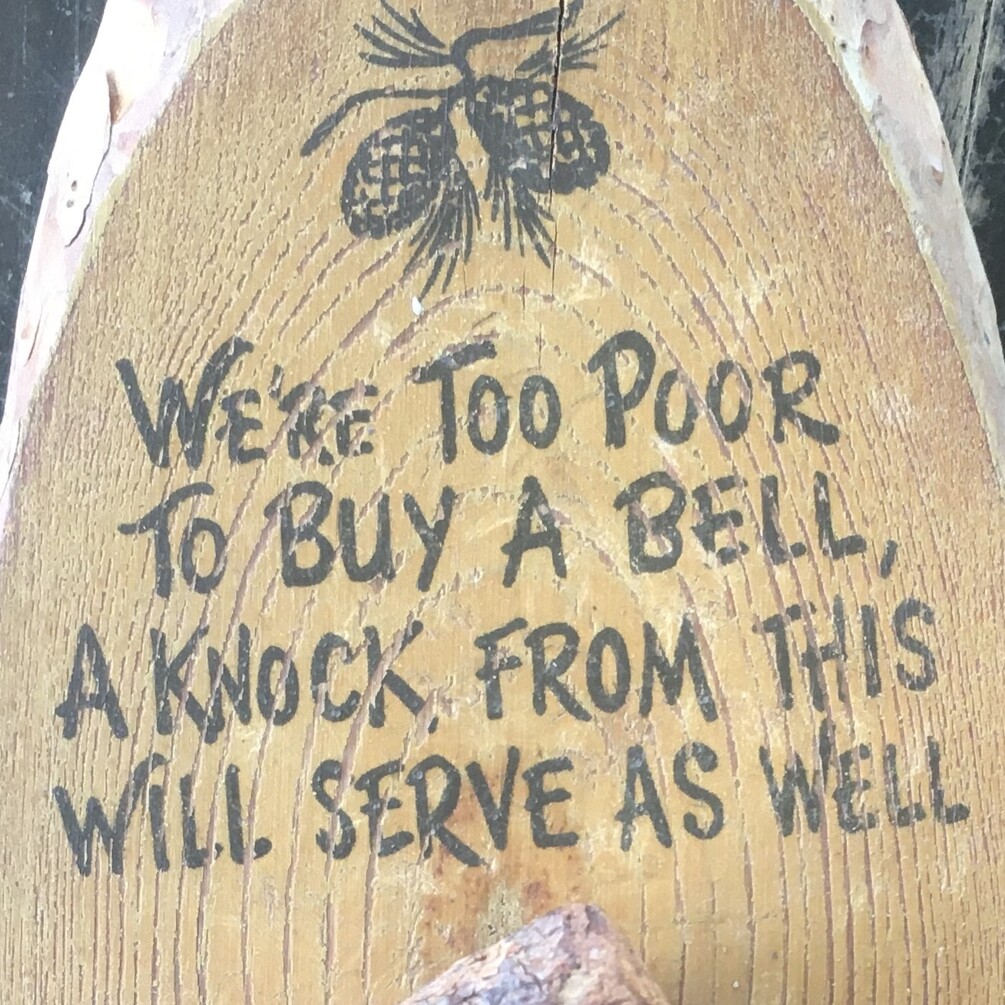 We're Too Poor
To Buy A Bell,
A Knock From This
Will Serve As Well